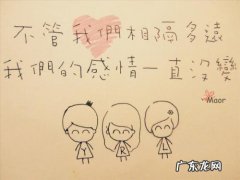 不管我們相隔多遠
我們的感情一直沒變
Maor
Y R T
广东龙网